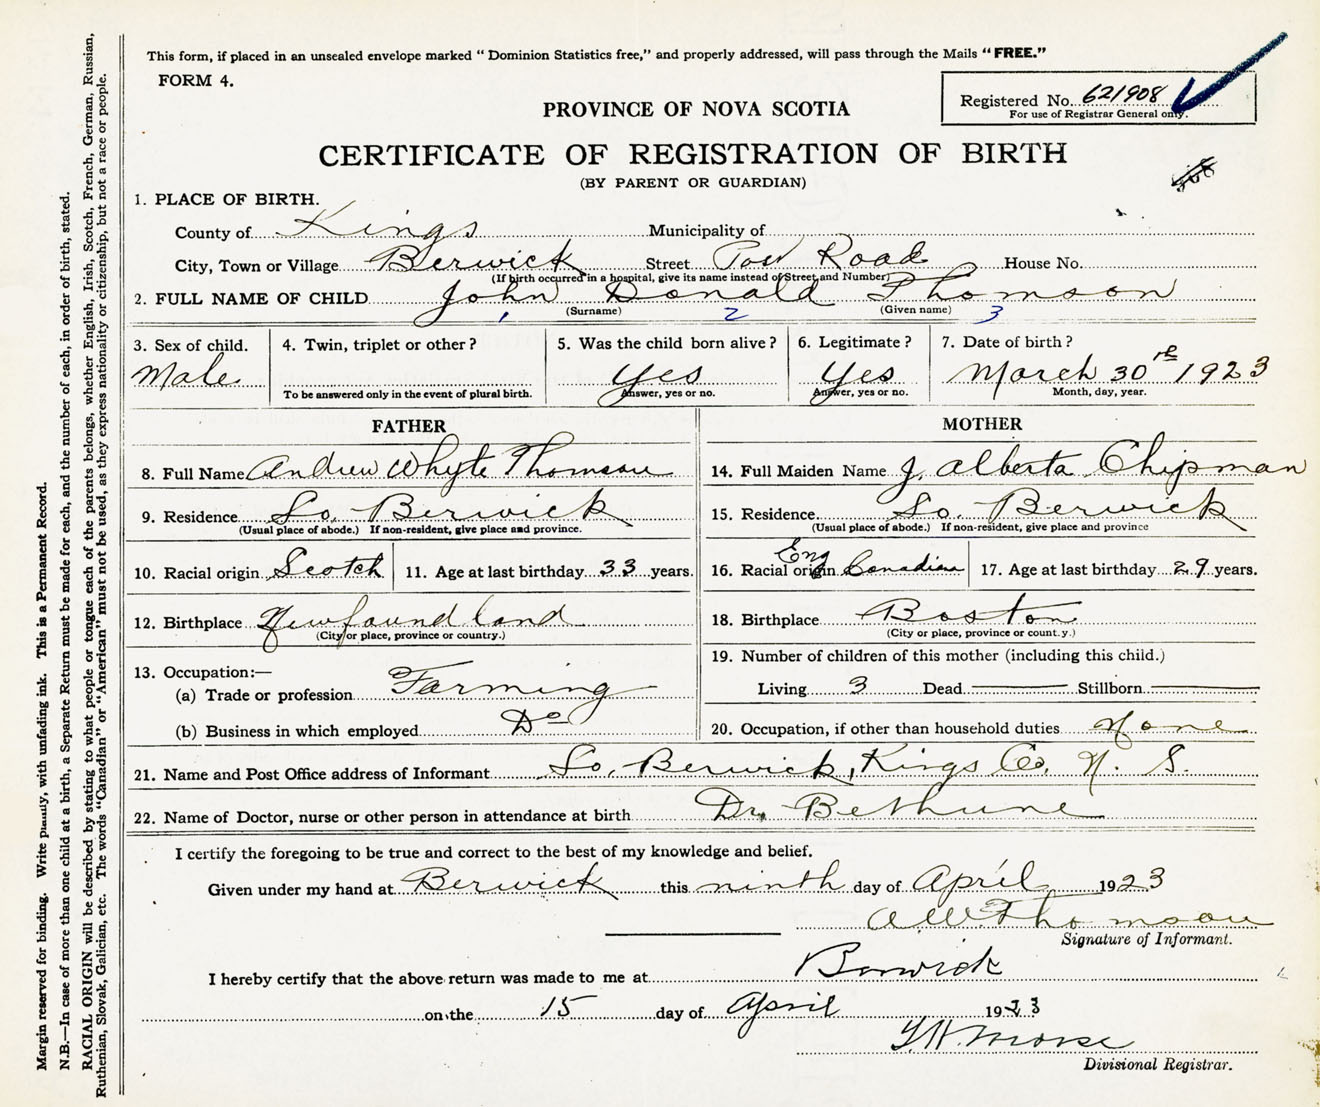 This form, if placed in an unsealed envelope marked "Dominion Statistics free," and properly addressed, will pass through the Mails "FREE."
FORM 4.
Registered No. 621908
For use of Registrar General only.
PROVINCE OF NOVA SCOTIA
CERTIFICATE OF REGISTRATION OF BIRTH
(BY PARENT OR GUARDIAN)
1. PLACE OF BIRTH.
County of Kings Municipality of
City, Town or Village Berwick Street Post Road House No.
(If birth occurred in a hospital, give its name instead of Street and Number)
2. FULL NAME OF CHILD John Donald Thomson
(Surname) (Given name)
1 2 3
3. Sex of child. 4. Twin, triplet or other? 5. Was the child born alive? 6. Legitimate? 7. Date of birth?
Male yes yes March 30th 1923
To be answered only in the event of plural birth. Answer, yes or no. Answer, yes or no. Month, day, year.
FATHER
8. Full Name Andrew Whyte Thomson
9. Residence So. Berwick
(Usual place of abode.) If non-resident, give place and province.
10. Racial origin Scotch 11. Age at last birthday 33 years.
12. Birthplace Newfoundland
(City or place, province or country.)
13. Occupation:—
(a) Trade or profession Farming
(b) Business in which employed Do
MOTHER
14. Full Maiden Name J. Alberta Chipman
15. Residence So. Berwick
(Usual place of abode.) If non-resident, give place and province
16. Racial origin Eng Canadian 17. Age at last birthday 29 years.
18. Birthplace Boston
(City or place, province or count.y.)
19. Number of children of this mother (including this child.)
Living 3 Dead Stillborn
20. Occupation, if other than household duties None
21. Name and Post Office address of Informant So. Berwick, Kings Co. N. S.
22. Name of Doctor, nurse or other person in attendance at birth Dr. Bethune
I certify the foregoing to be true and correct to the best of my knowledge and belief.
Given under my hand at Berwick this ninth day of April 1923
A.W. Thomson
Signature of Informant.
I hereby certify that the above return was made to me at Berwick
on the 15 day of April 1923
Morse
Divisional Registrar.
Margin reserved for binding. Write plainly, with unfading ink. This is a Permanent Record.
N.B.—In case of more than one child at a birth, a Separate Return must be made for each, and the number of each, in order of birth, stated.
RACIAL ORIGIN will be described by stating to what people or tongue each of the parents belongs, whether English, Irish, Scotch, French, German, Russian,
Ruthenian, Slovak, Galician, etc. The words "Canadian" or "American" must not be used, as they express nationality or citizenship, but not a race or people.